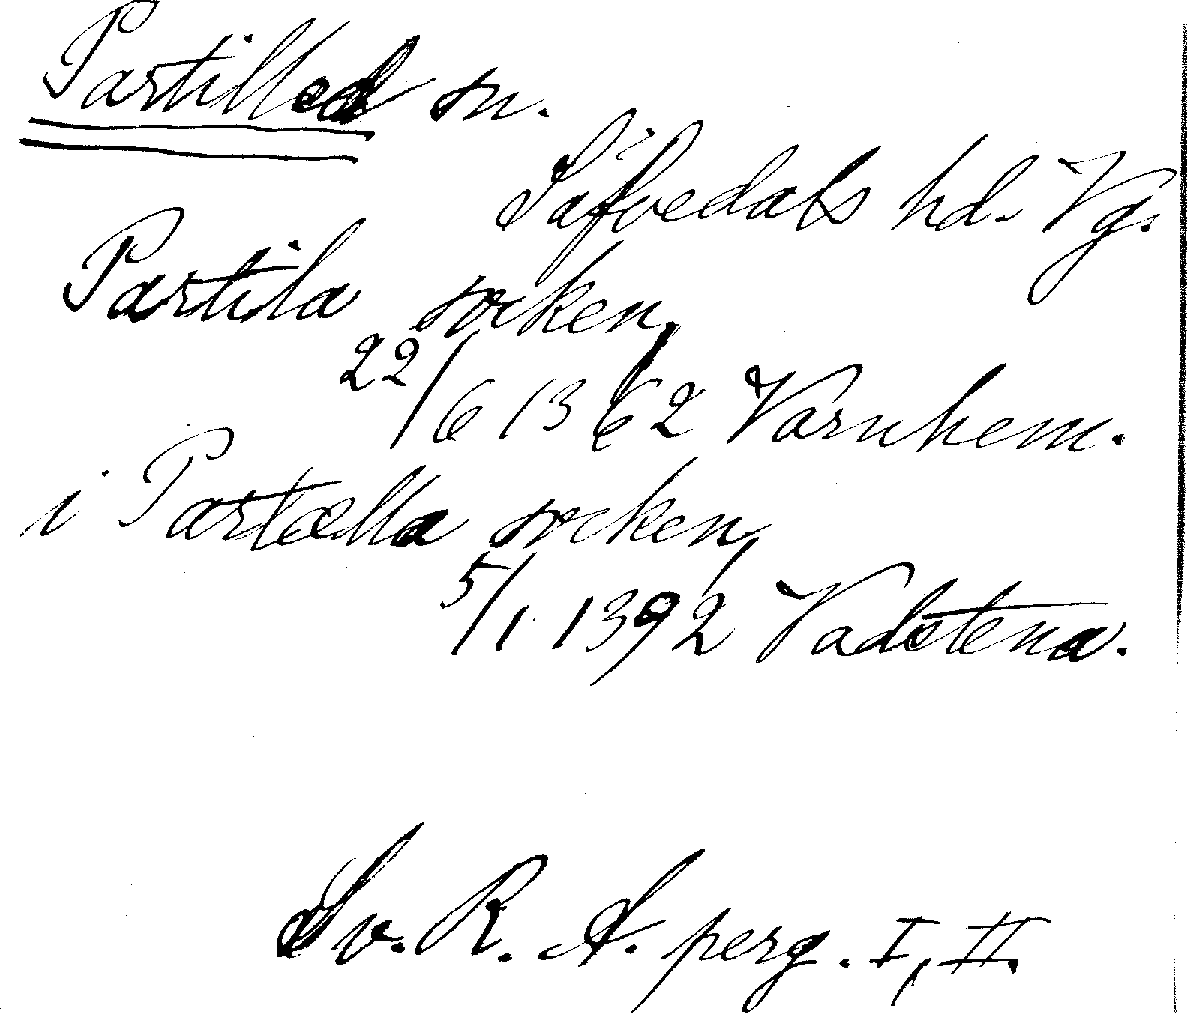 Partilled sn.
Säfvedals hd. Vg.
Partila socken,
22/6 1362 Varnhem.
i Partælla socken,
5/1 1392 Vadstena.
Sv. R. A. perg. I, II.